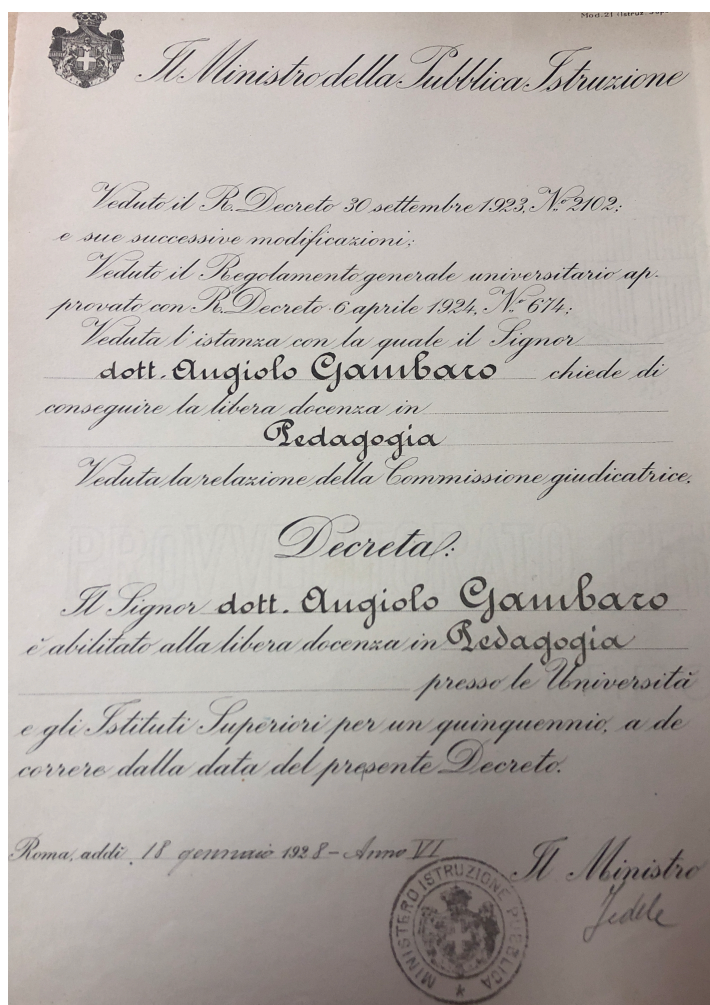 Mod. 21 (Istruz. Sup.
Il Ministro della Pubblica Istruzione
Veduto il R. Decreto 30 settembre 1923, N.º 2102;
e sue successive modificazioni;
Veduto il Regolamento generale universitario ap-
provato con R. Decreto 6 aprile 1924, N.º 674;
Veduta l'istanza con la quale il Signor
dott. Angiolo Gambaro chiede di
conseguire la libera docenza in
Pedagogia
Veduta la relazione della Commissione giudicatrice.
Decreta:
Il Signor dott. Angiolo Gambaro
è abilitato alla libera docenza in Pedagogia
presso le Università
e gli Istituti Superiori per un quinquennio, a de
correre dalla data del presente Decreto.
Roma, addì 18 gennaio 1928 - Anno VI
Il Ministro
Fedele
MINISTERO ISTRUZIONE PUBBLICA